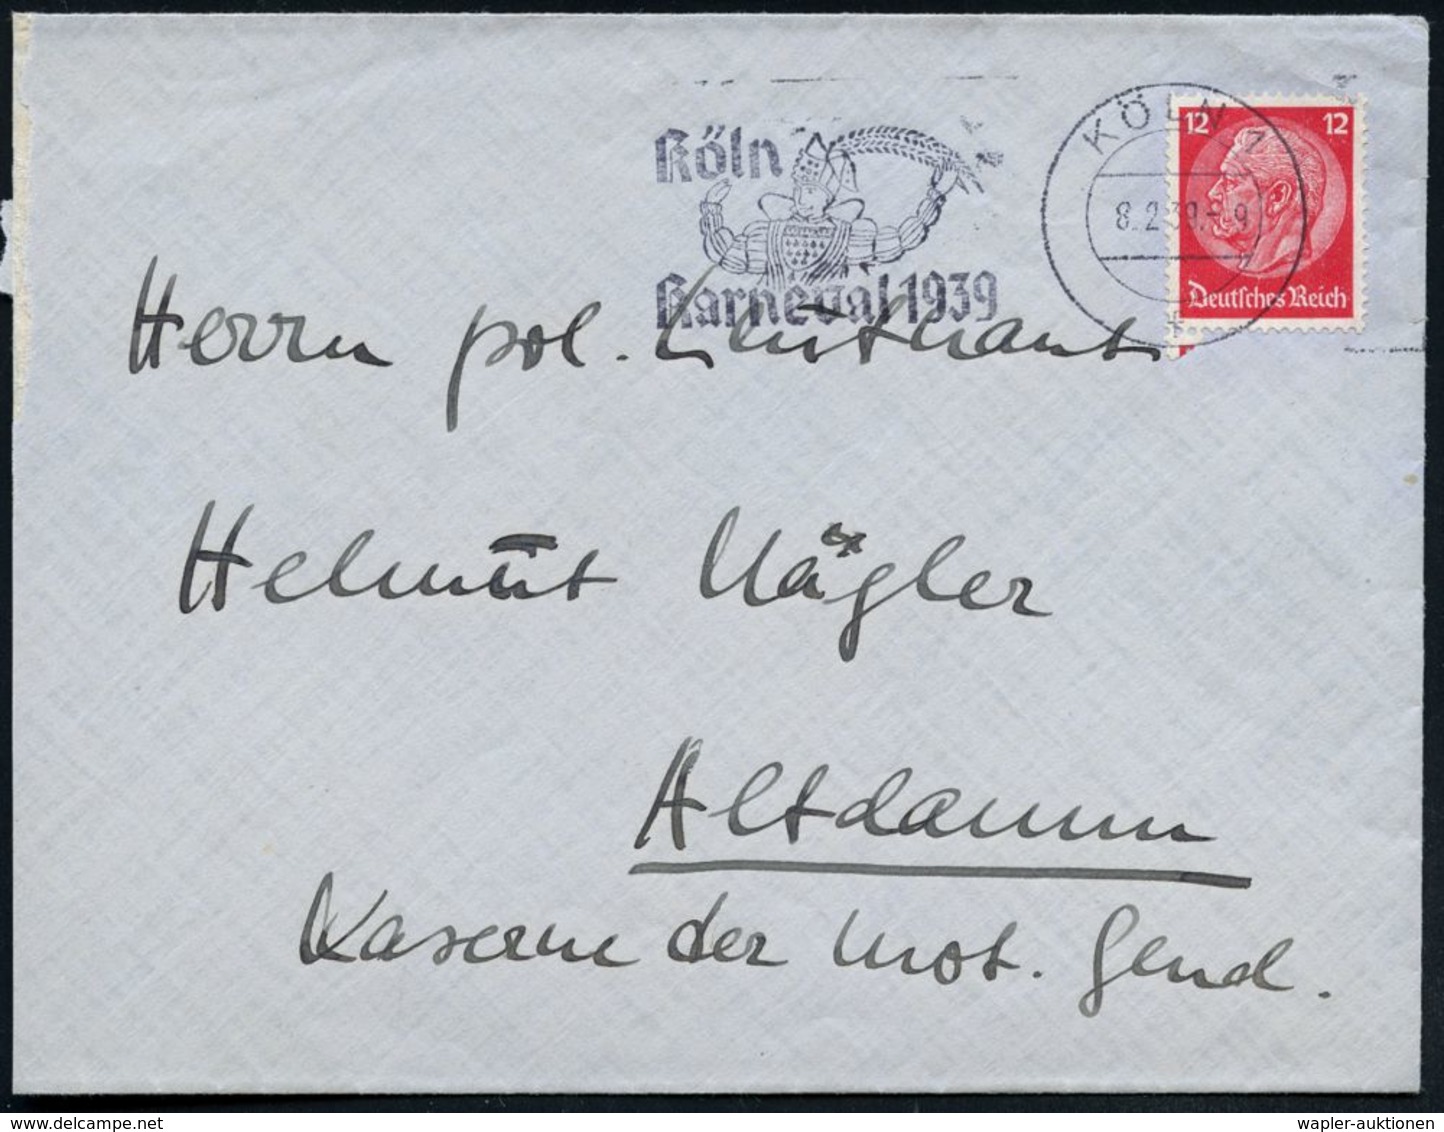 Köln
Karneval 1939
KÖLN 1
8.2.39.-9
12 12
Deutsches Reich
Herrn pol. Leutnant
Helmut Nägler
Altdamm
Kaserne der mot. Gend.
wapler-auktionen